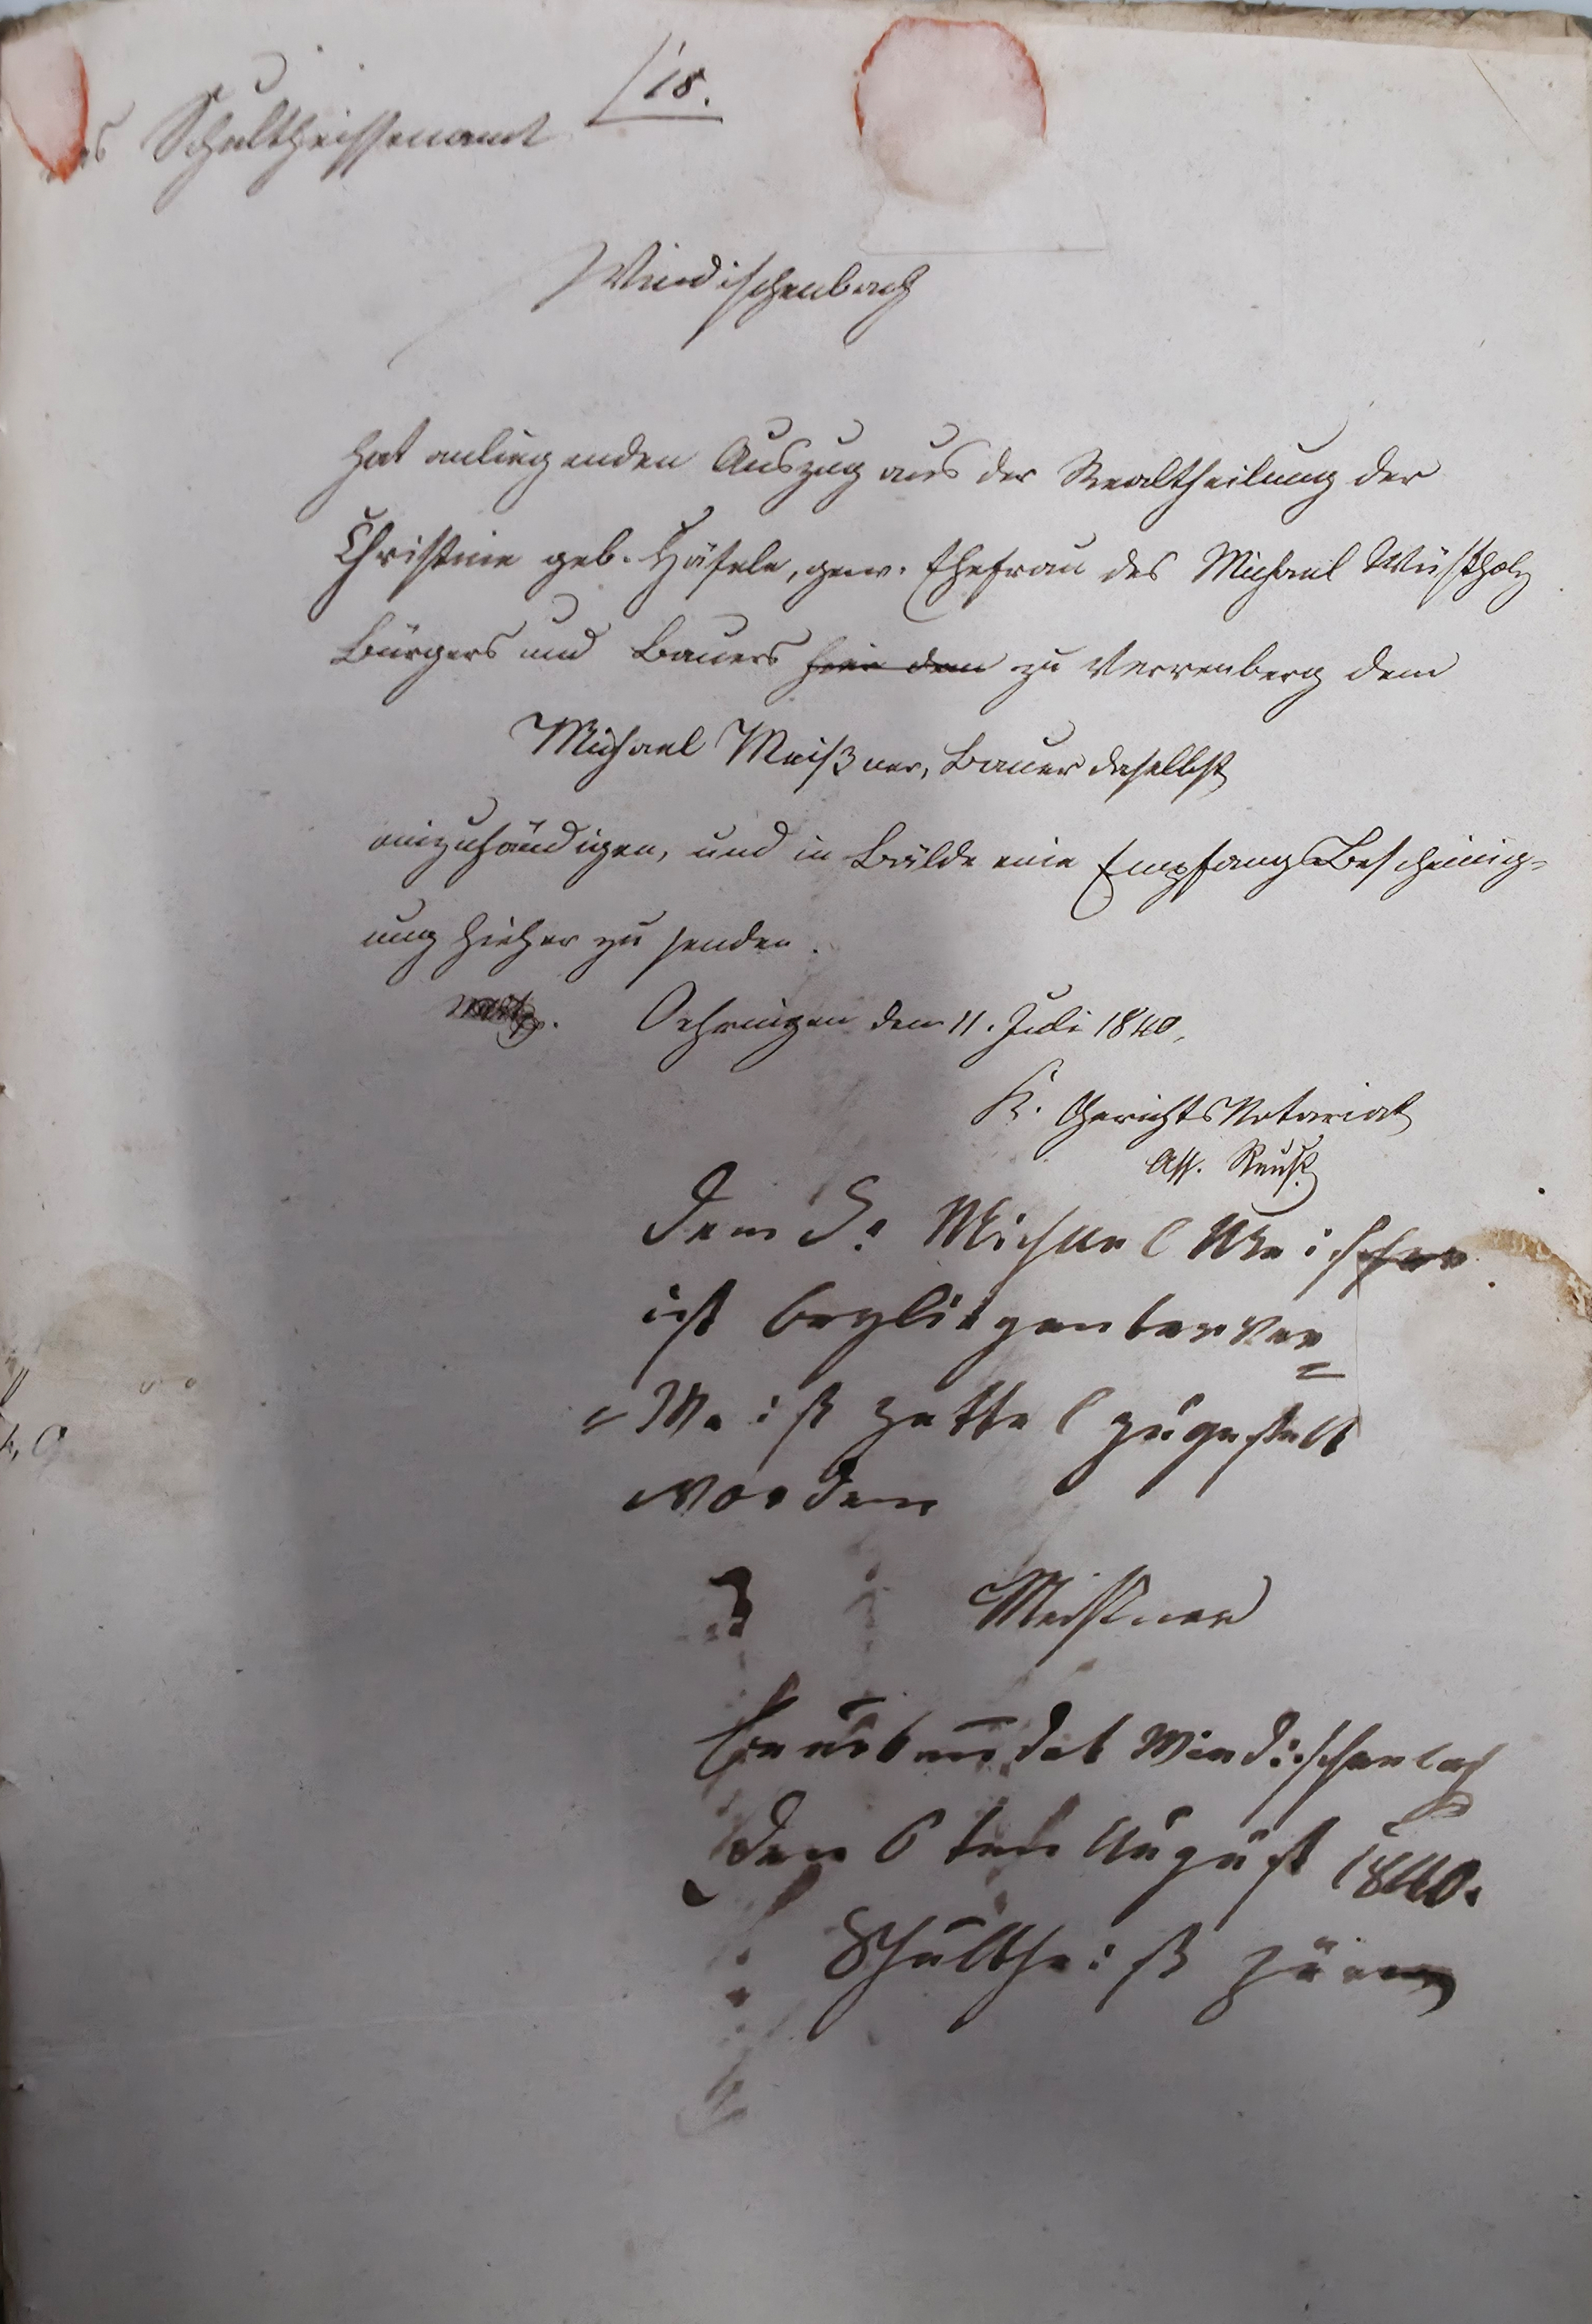 /18.
Schultheissenamt
Windischenbach
hat anliegenden Auszug aus der Realtheilung der
Christine geb. Häfele, gew. Ehefrau des Michael Wüstholz
Bürgers und Bauers hier dem zu Verrenberg dem
Michael Meißner, Bauer daselbst
einzuhändigen, und in Bälde eine Empfangs Bescheinig-
ung hieher zu senden.
Oehringen den 11. Juli 1840,
K. GerichtsNotariat
Ass. Reuß
Dem Michael
ist beyliegender Ver=
=Weiß zettel zugestelt
worden
Meißner
Beurkundet Windischenbach
den 6ten August 1840.
Schultheiß